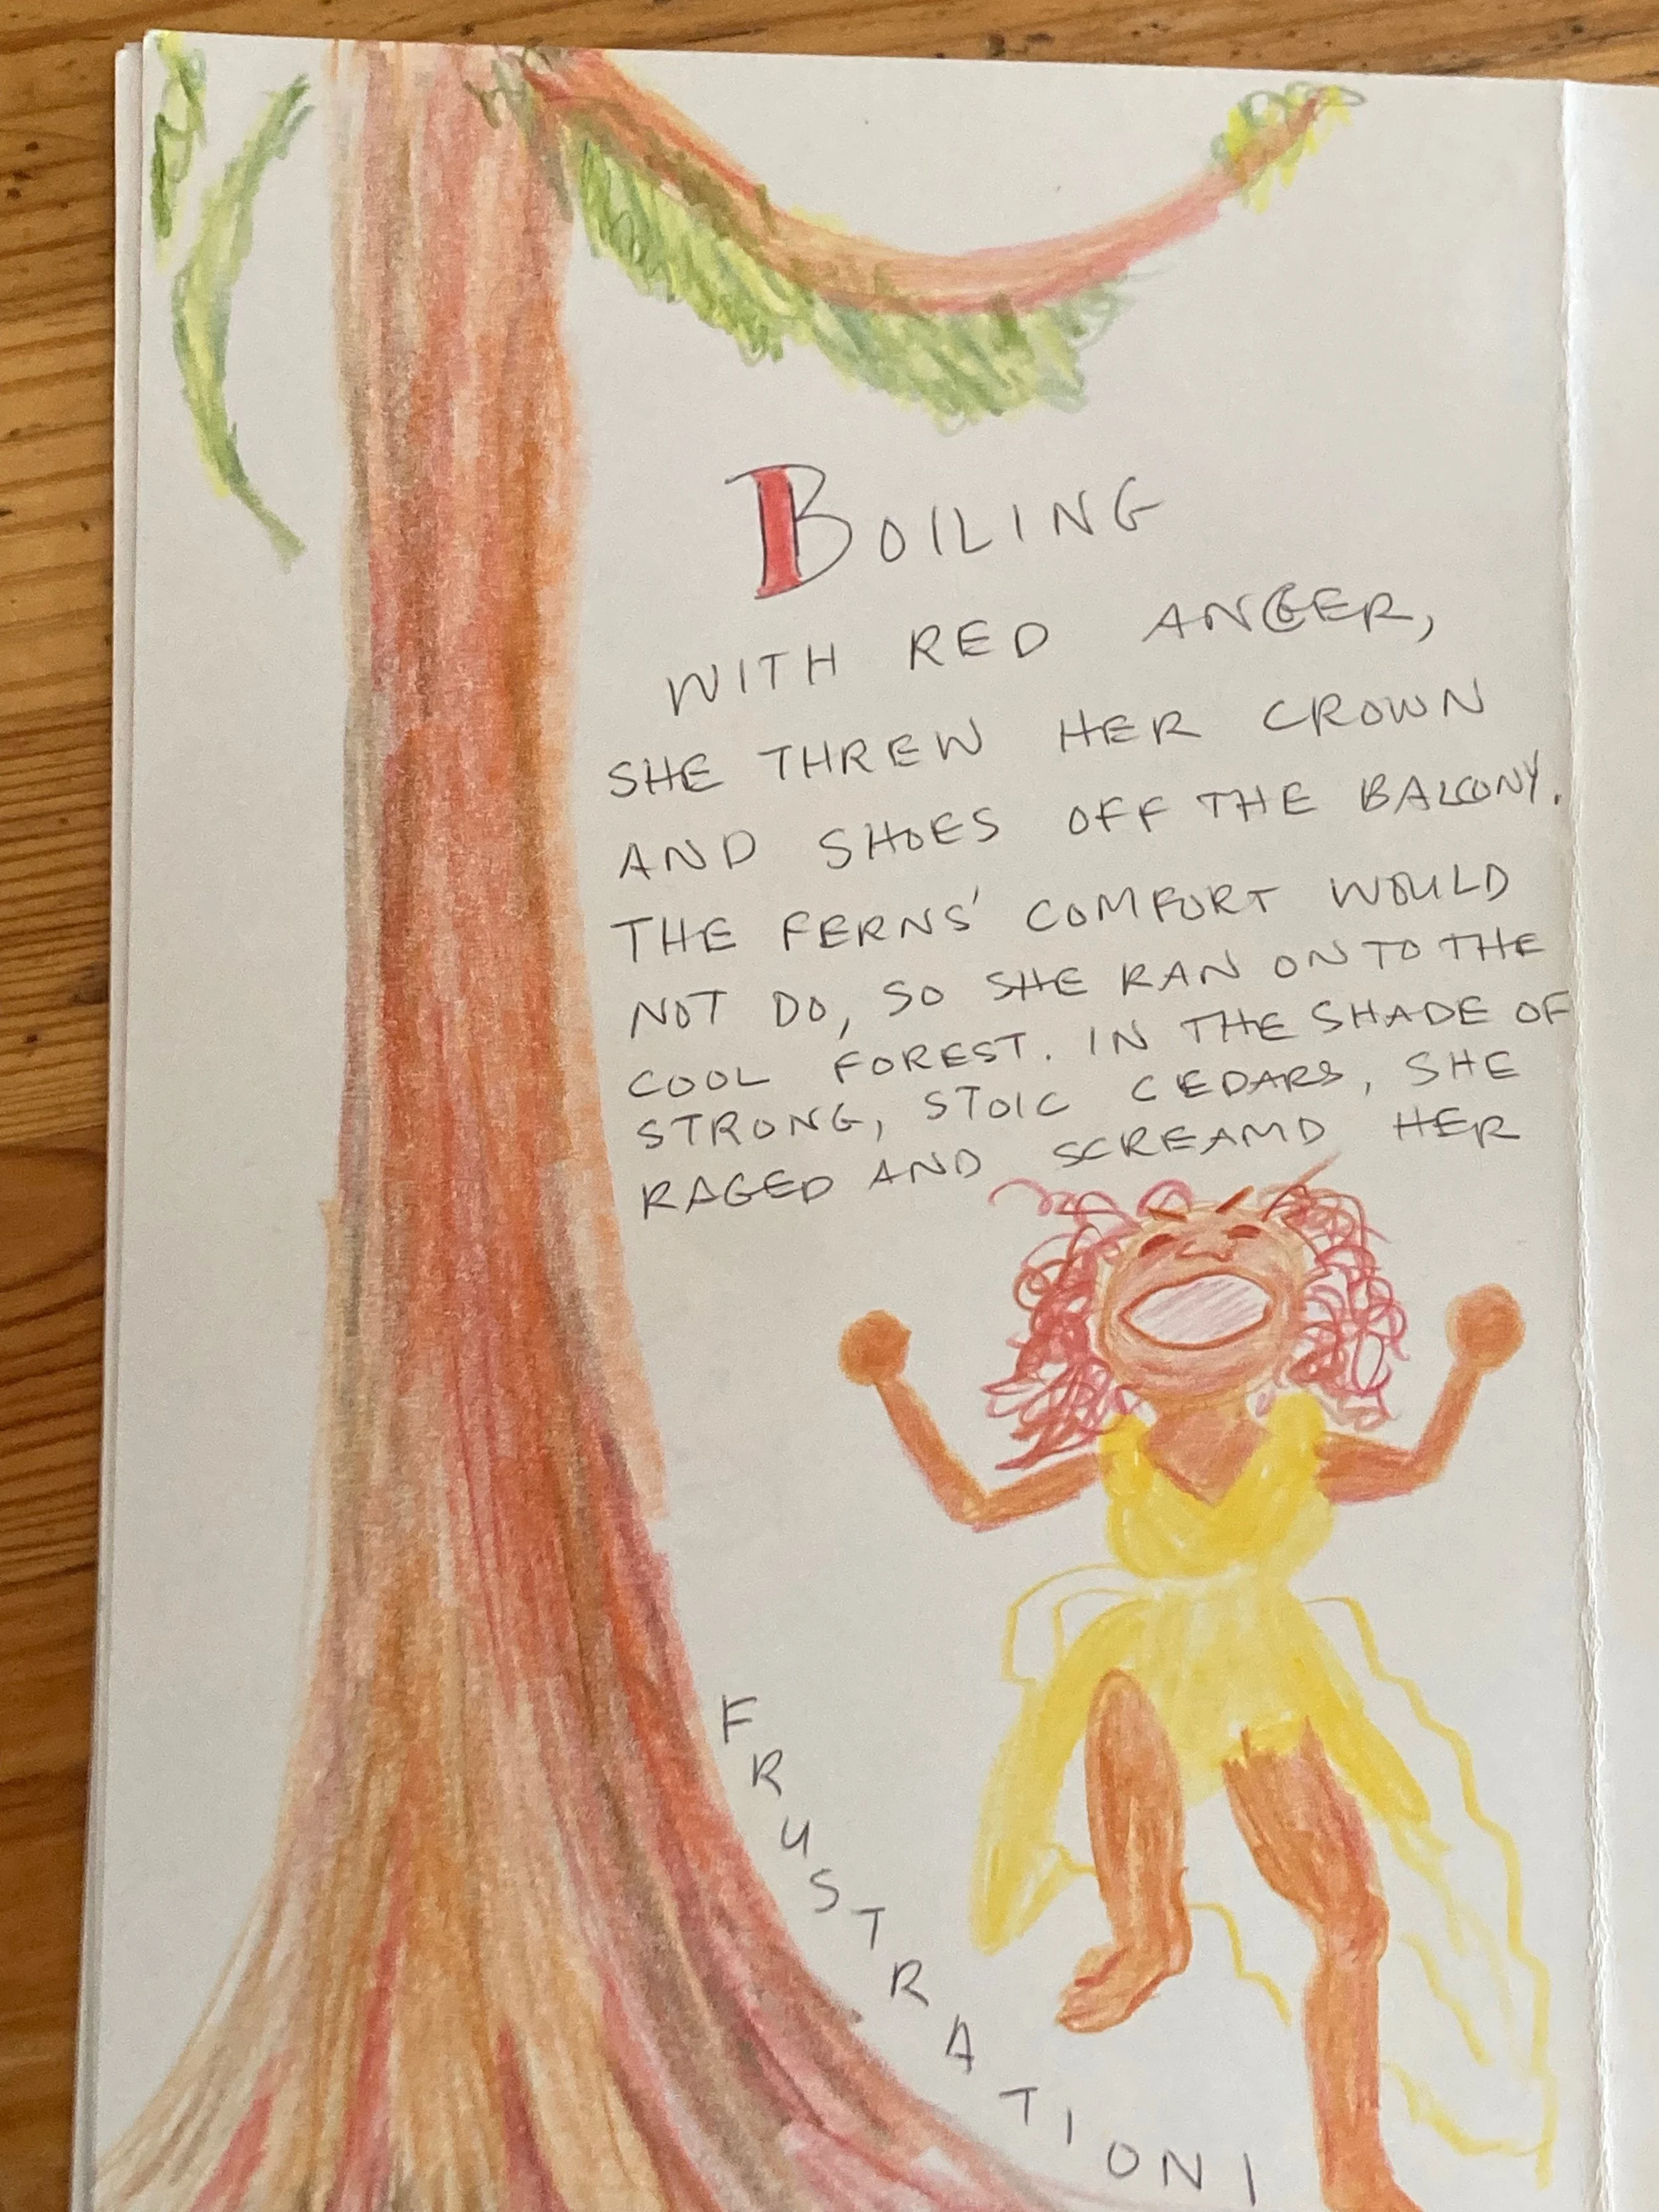 BOILING
WITH RED ANGER,
SHE THREW HER CROWN
AND SHOES OFF THE BALCONY.
THE FERNS' COMFORT WOULD
NOT DO, SO SHE RAN ON TO THE
COOL FOREST. IN THE SHADE OF
STRONG, STOIC CEDARS, SHE
RAGED AND SCREAMD HER
FRUSTRATION!